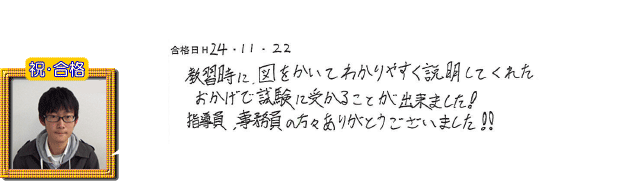 祝・合格
合格日H24・11・22
教習時に、図をかいてわかりやすく説明してくれた
おかげで試験に受かることが出来ました!
指導員、事務員の方々ありがとうございました!!